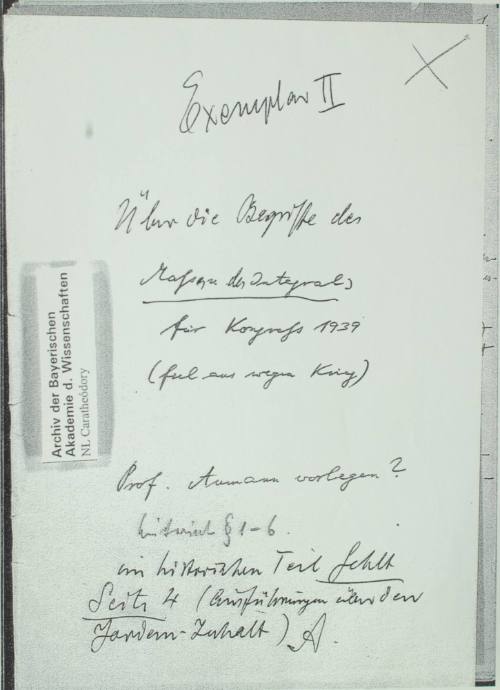 Exemplar II
Über die Begriffe des
Maßes u. des Integrals
für Kongreß 1939
(fiel aus wegen Krieg)
Archiv der Bayerischen
Akademie d. Wissenschaften
NL Carathéodory
Prof. Aumann vorlegen?
§ 1-6.
im historischen Teil fehlt
Seite 4 (Ausführungen über den
Jordan-Inhalt) A.